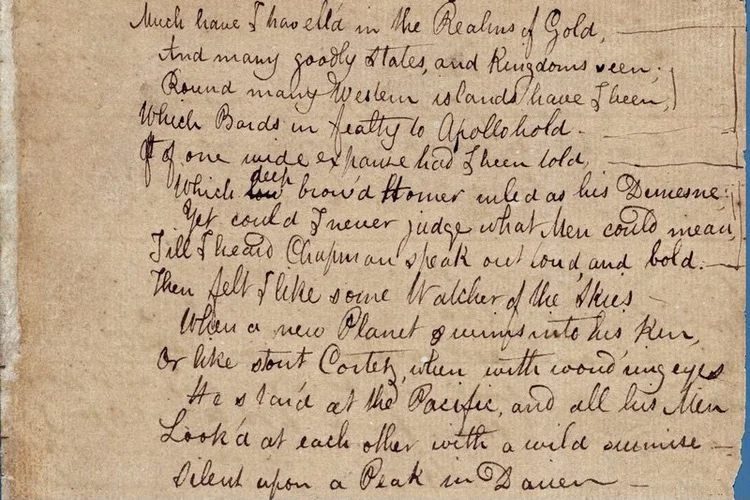 Much have I travell'd in the Realms of Gold,
And many goodly States, and Kingdoms seen;
Round many Western islands have I been,
Which Bards in fealty to Apollo hold.
Oft of one wide expanse had I been told,
Which low deep brow'd Homer ruled as his Demesne:
Yet could I never judge what Men could mean,
Till I heard Chapman speak out loud, and bold.
Then felt I like some Watcher of the Skies
When a new Planet swims into his Ken,
Or like stout Cortez, when with wond'ring eyes
He star'd at the Pacific, and all his Men
Look'd at each other with a wild surmise
Silent upon a Peak in Darien